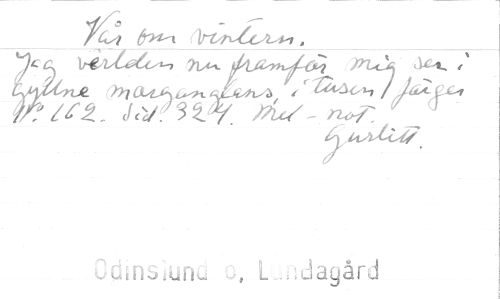 Vår om vintern.
Jag världen nu framför mig ser i
gyllne morgonglans, i tusen färger
N:o 162. Sid. 324. Mel-not.
Gurlitt.
Odinslund o, Lundagård